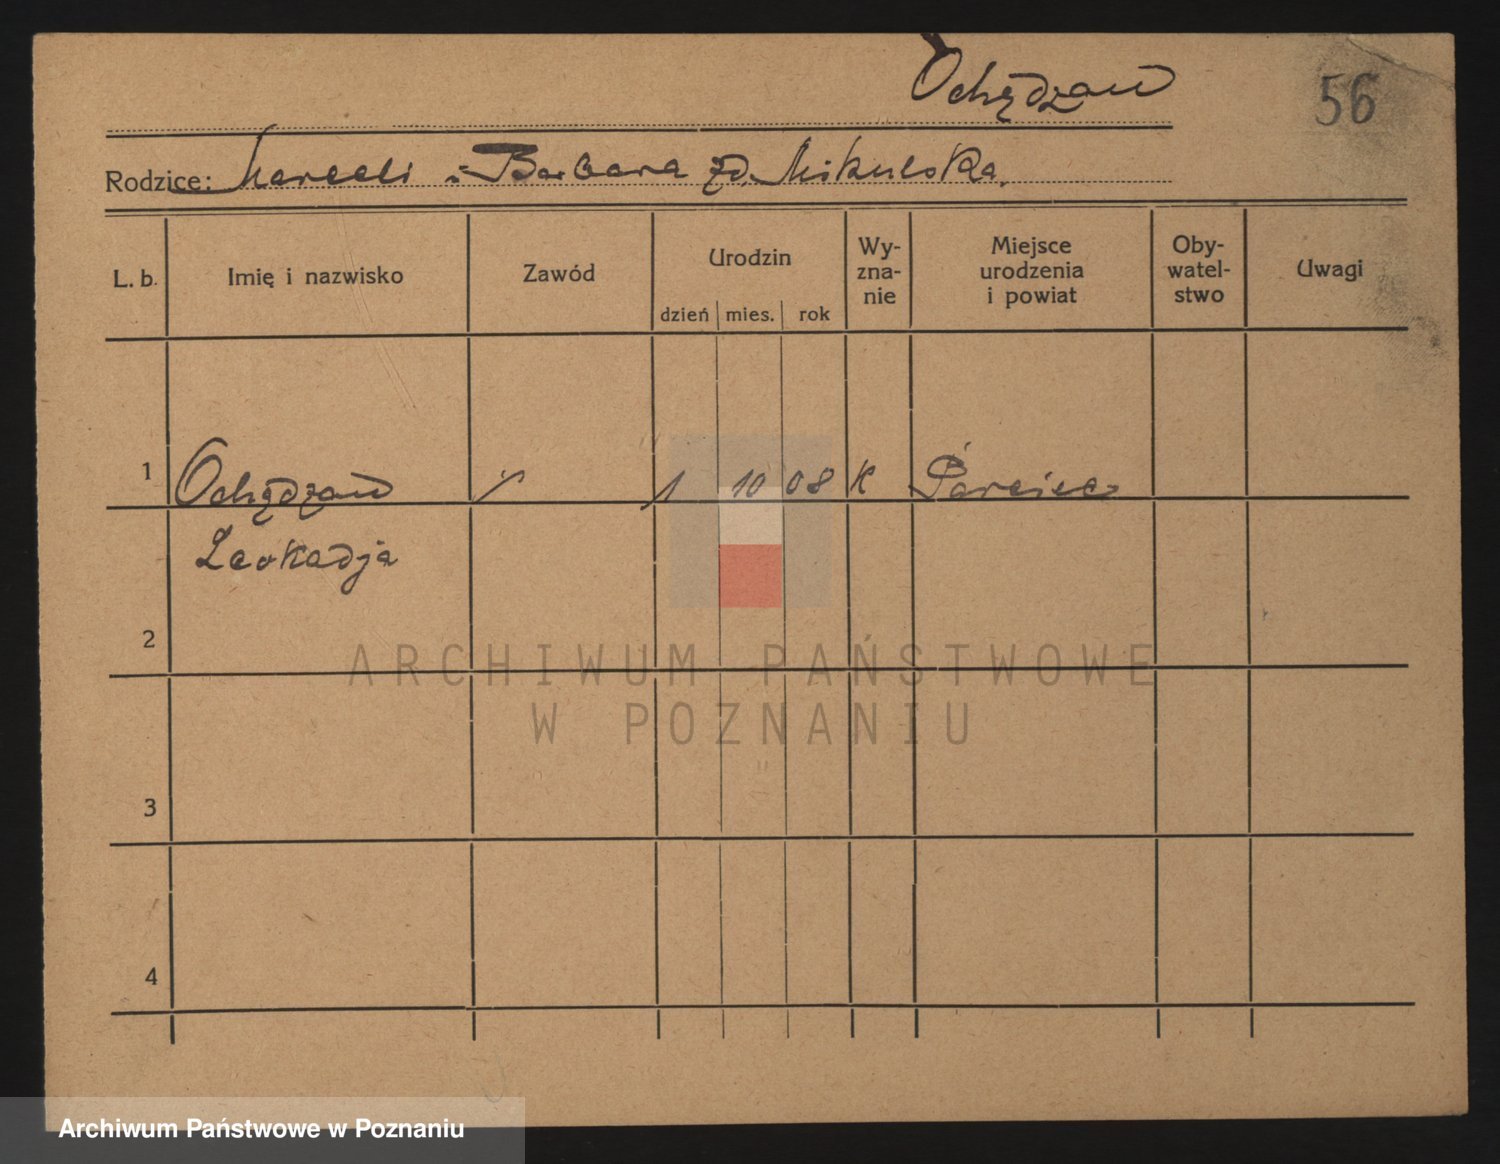 Ochędzan
56
Rodzice: Marceli i Barbara zd. Mikulska.
L. b. Imię i nazwisko Zawód Urodzin dzień mies. rok Wy- zna- nie Miejsce urodzenia i powiat Oby- watel- stwo Uwagi
1 Ochędzan 1 10 08 K
Leokadja
2
ARCHIWUM PAŃSTWOWE
W POZNANIU
3
4
Archiwum Państwowe w Poznaniu